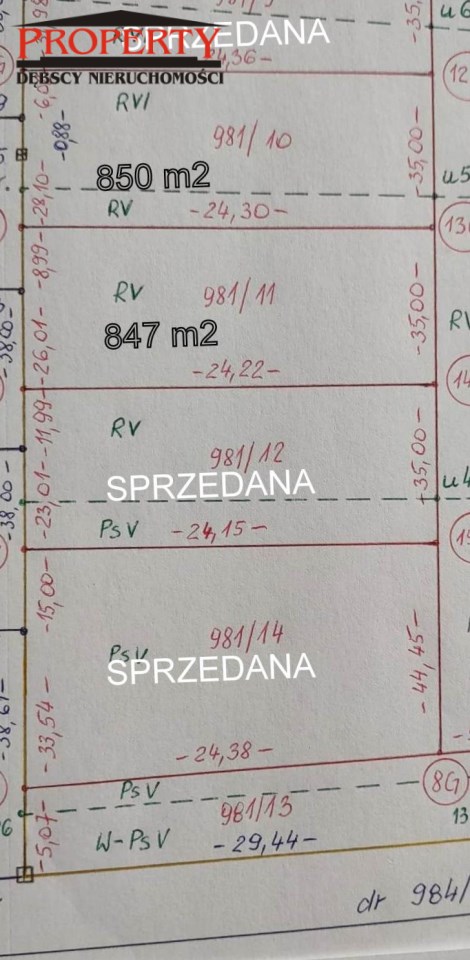 PROPERTY
DĘBSCY NIERUCHOMOŚCI
SPRZEDANA
RV
-35,
u6
12
-6,0
RVI
-0,88-
981/10
-35,00-
850 m2
u5
-28,10-
RV
-24,30-
13
-8,99-
RV
981/11
-35,00-
RV
847 m2
-38,00-
-26,01-
-24,22-
14
-11,99-
RV
981/12
-35,00-
SPRZEDANA
u4
-38,00-
-23,01-
PsV
-24,15-
-15,00-
981/14
PsV
SPRZEDANA
-44,45-
-38,61-
-33,54-
-24,38-
PsV
8G
981/13
-5,07-
W-PsV
-29,44-
13
dr 984/